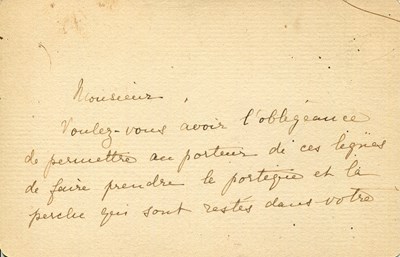 Monsieur,
Voulez-vous avoir l'obligeance
de permettre au porteur de ces lignes
de faire prendre le portique et la
perche qui sont restés dans votre